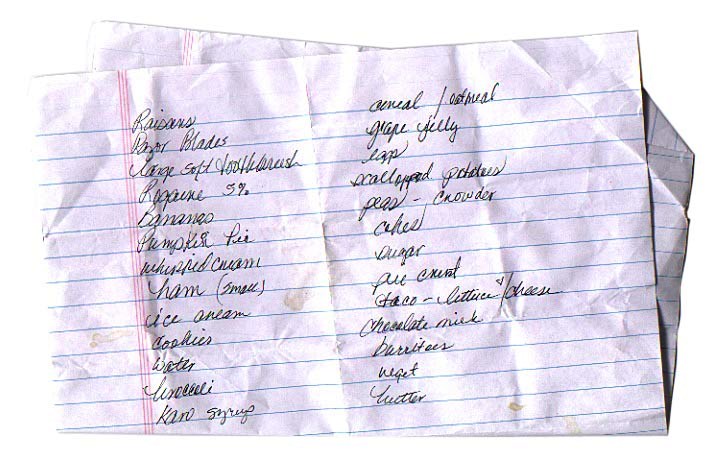 Raisans
Razor Blades
large soft toothbrush
Rogaine 5%
Bananas
Pumpkin Pie
whipped cream
ham (small)
ice cream
cookies
water
broccoli
Karo syrup
cereal / oatmeal
grape jelly
eggs
scallopped potatoes
peas - chowder
cakes
sugar
pie crust
taco - lettuce / cheese
chocolate milk
burritoes
butter